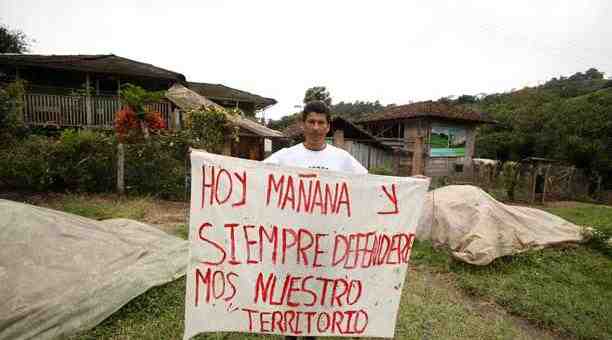 HOY MAÑANA Y
SIEMPRE DEFENDERE
MOS NUESTRO
TERRITORIO